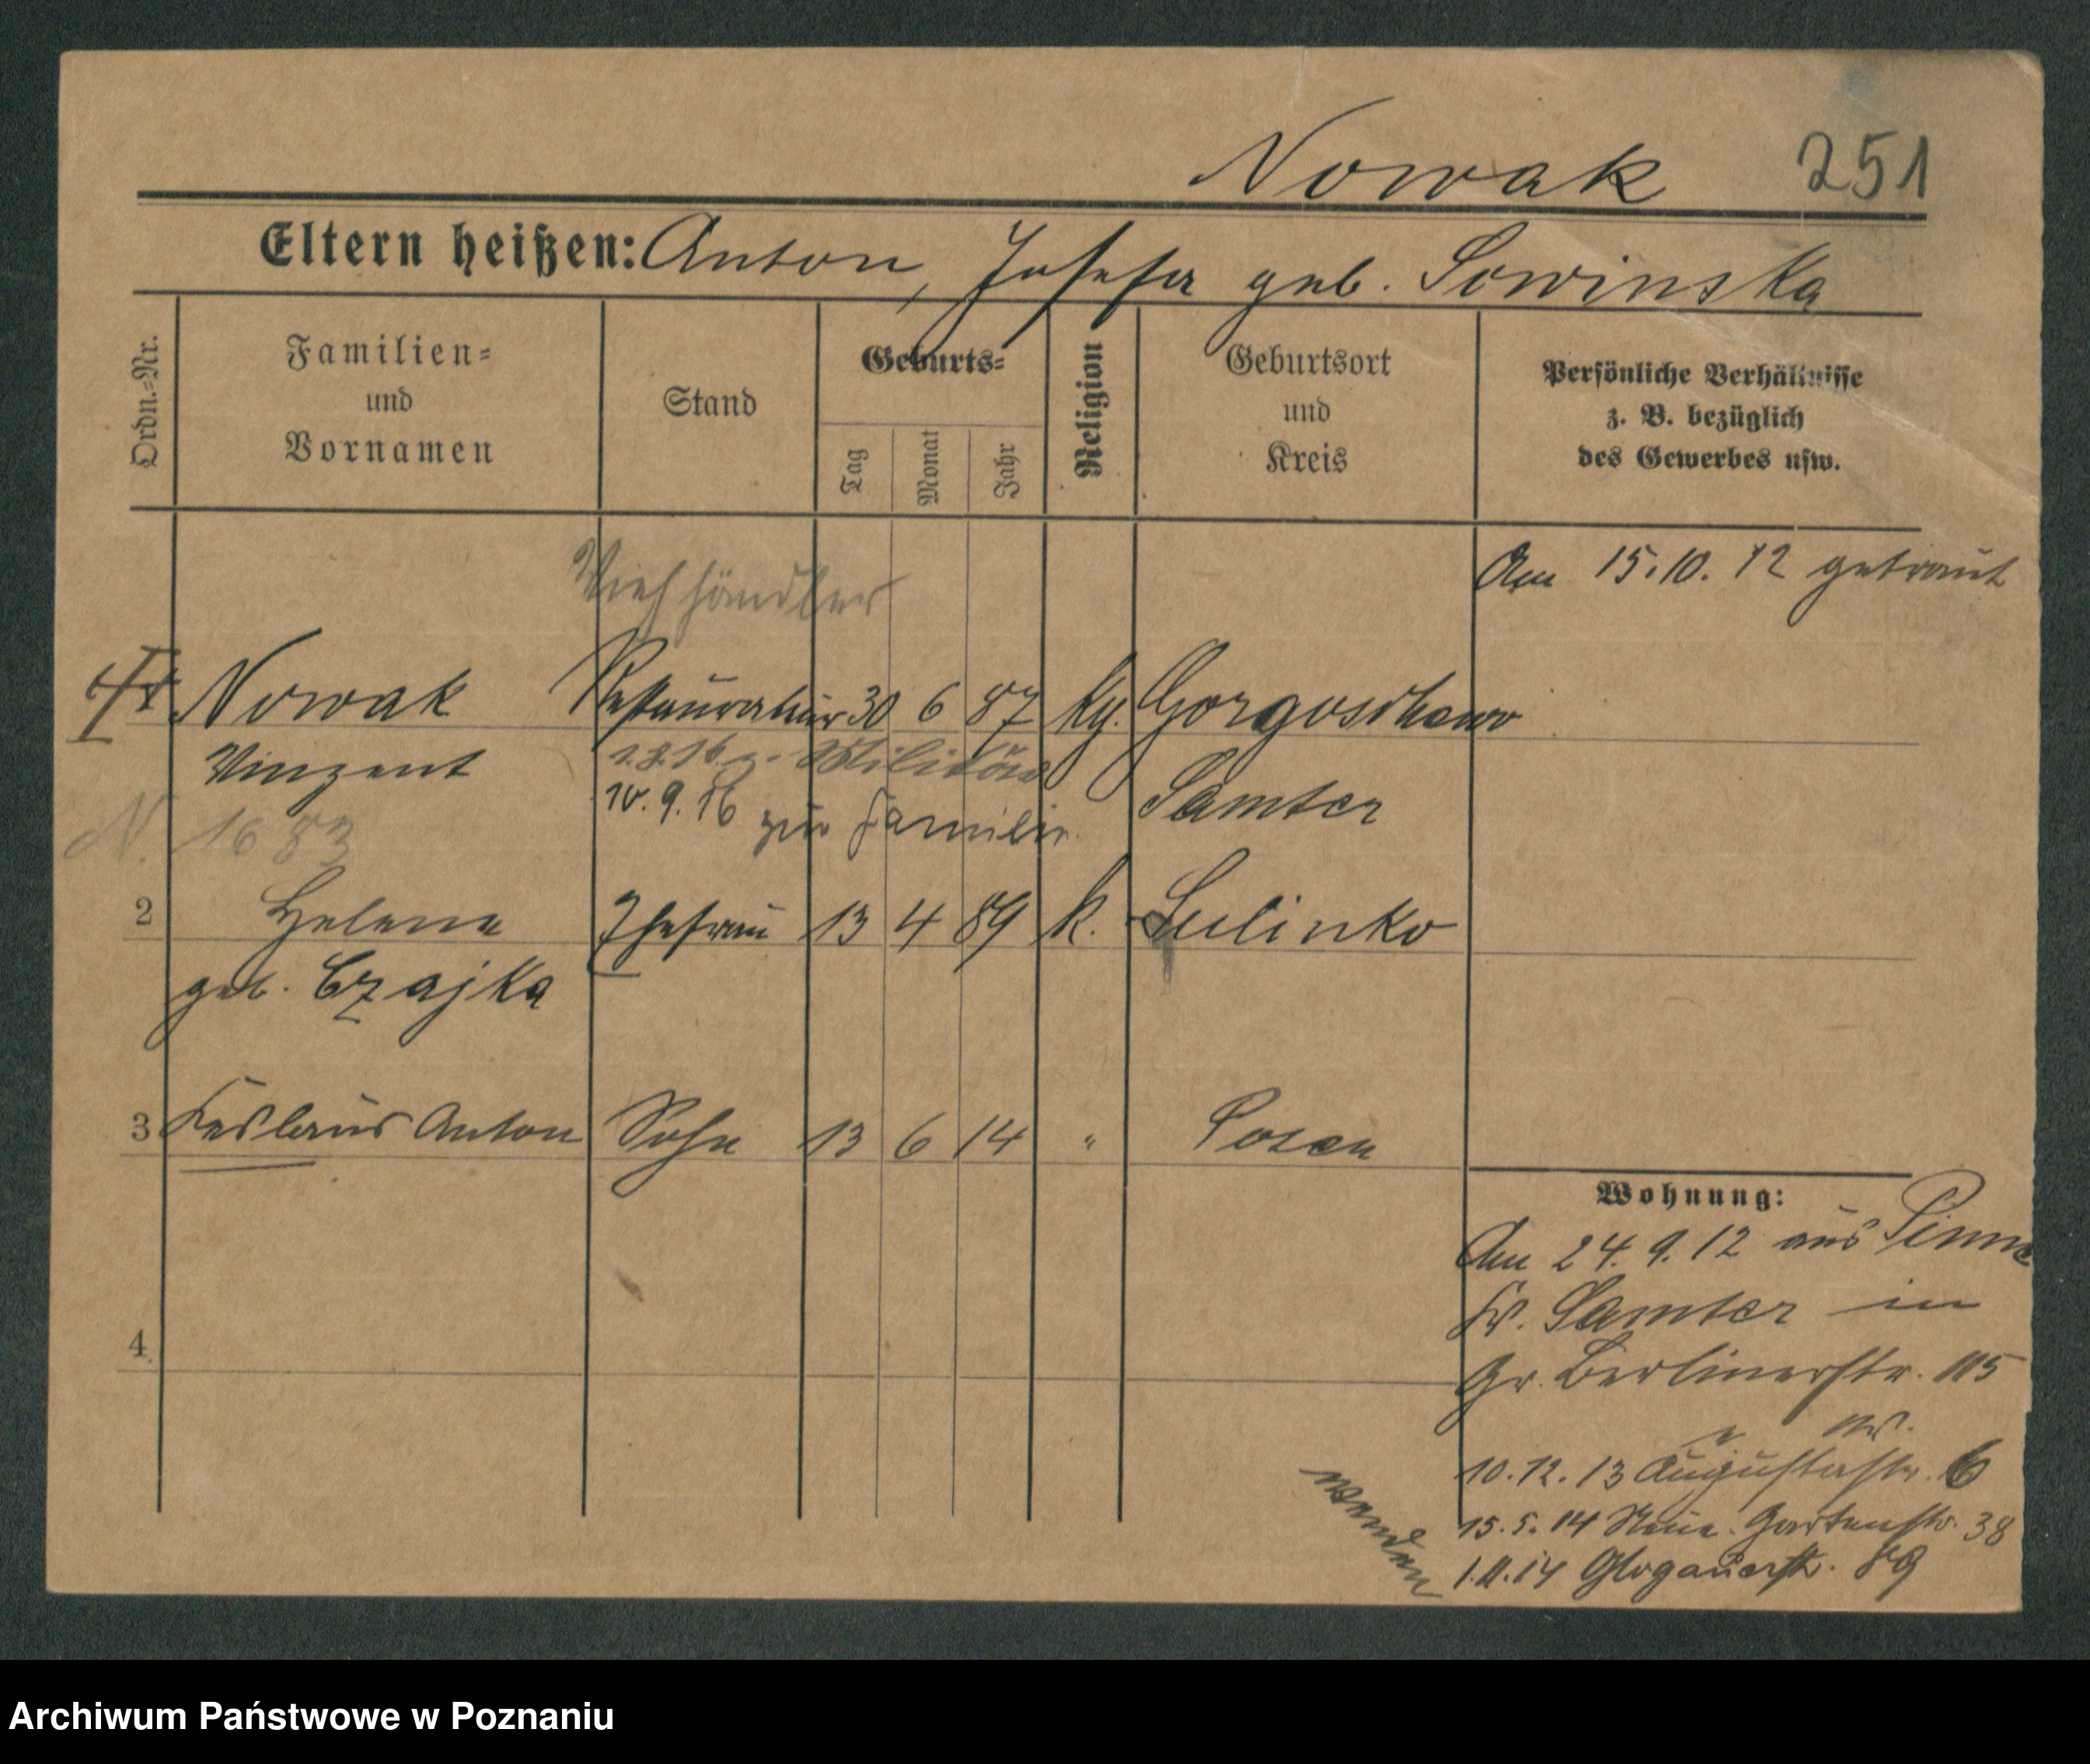 Nowak 251
Eltern heißen: Anton, Josefa geb. Sowinska
Ordn.-Nr.
Familien-
und
Vornamen
Stand
Geburts-
Tag
Monat
Jahr
Religion
Geburtsort
und
Kreis
Persönliche Verhältnisse
z. B. bezüglich
des Gewerbes usw.
Viehhändler
Am 15.10.12 getraut
Nowak Restaurateur 30 6 87 kg. Gorgoschewo
Vinzent 1.8.16 z. Militär Samter
10.9.16 zur Familie
N. 1683
2 Helene Ehefrau 13 4 89 k. Sulinko
geb. Czajka
3 Anton Sohn 13 6 14 " Posen
4
Wohnung:
Am 24.9.12 aus Pinne
Kr. Samter in
Gr. Berlinerstr. 115
10.12.13 Augustastr. 6
15.5.14 Neue Gartenstr. 38
1.11.14 Glogauerstr. 89
wenden
Archiwum Państwowe w Poznaniu